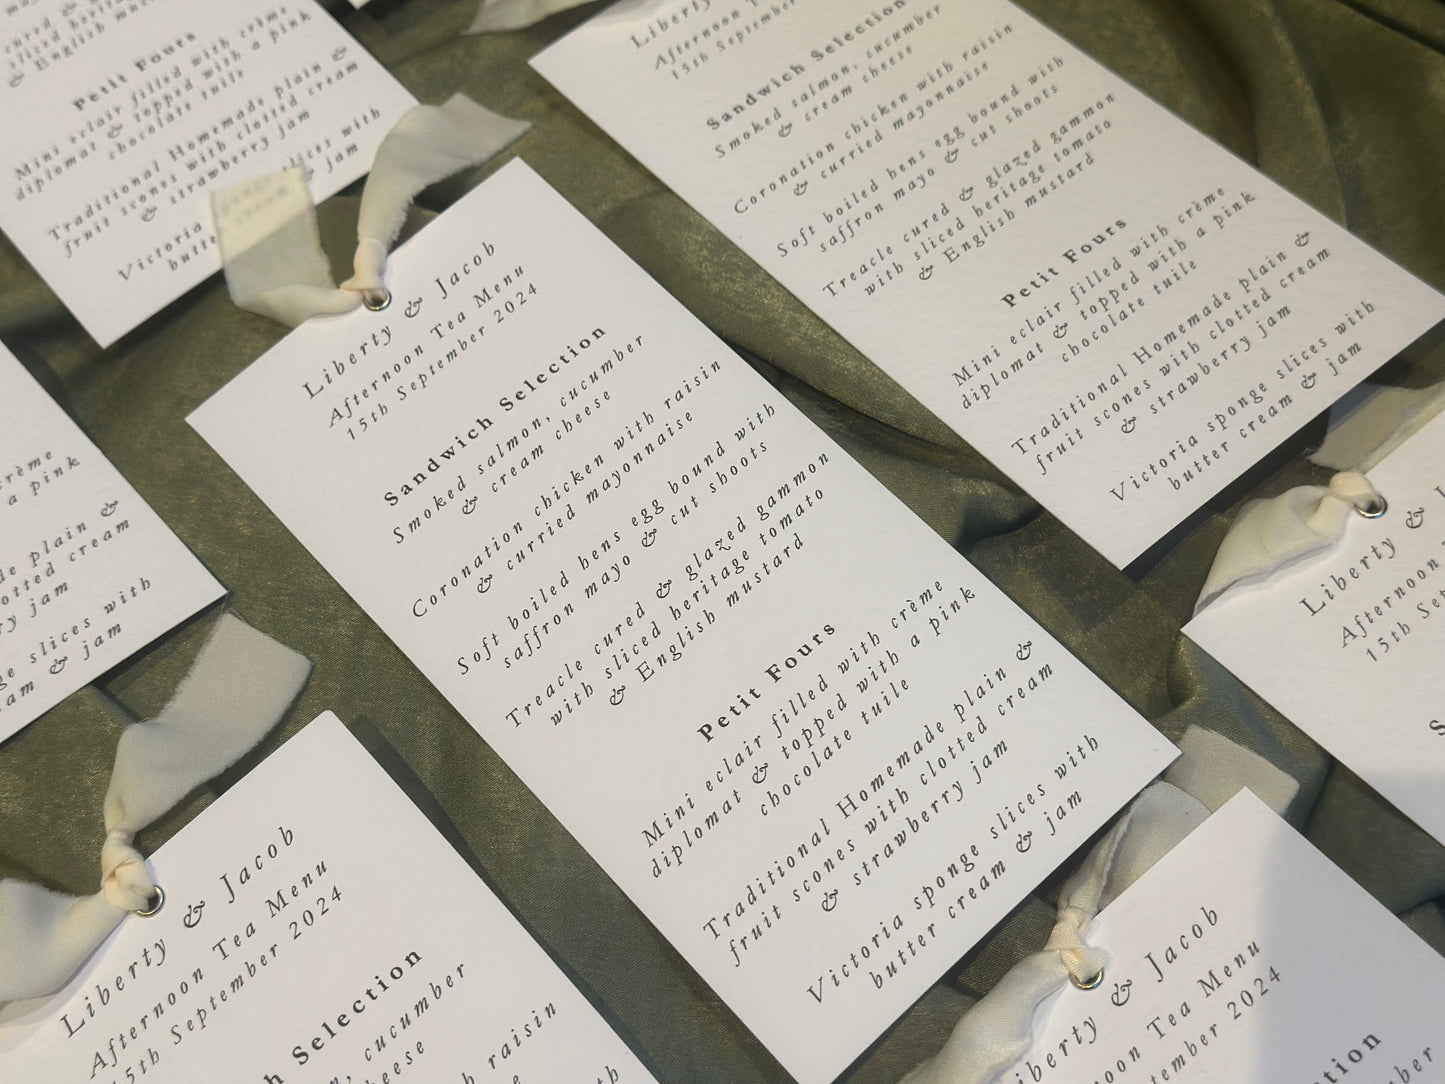 Liberty & Jacob
Afternoon Tea Menu
15th September 2024
Sandwich Selection
Smoked salmon, cucumber
& cream cheese
Coronation chicken with raisin
& curried mayonnaise
Soft boiled hens egg bound with
saffron mayo & cut shoots
Treacle cured & glazed gammon
with sliced heritage tomato
& English mustard
Petit Fours
Mini eclair filled with crème
diplomat & topped with a pink
chocolate tuile
Traditional Homemade plain &
fruit scones with clotted cream
& strawberry jam
Victoria sponge slices with
butter cream & jam
& English
Petit Fours
Mini eclair filled with crème
diplomat & topped with a pink
chocolate tuile
Traditional Homemade plain &
fruit scones with clotted cream
& strawberry jam
Victoria slices with
jam
Liberty
Afternoon
15th September
Sandwich Selection
Smoked salmon, cucumber
& cream cheese
Coronation chicken with raisin
& curried mayonnaise
Soft boiled hens egg bound with
saffron mayo & cut shoots
Treacle cured & glazed gammon
with sliced heritage tomato
& English mustard
Petit Fours
Mini eclair filled with crème
diplomat & topped with a pink
chocolate tuile
Traditional Homemade plain &
fruit scones with clotted cream
& strawberry jam
Victoria sponge slices with
butter cream & jam
crème
a pink
plain &
clotted cream
jam
slices with
& jam
Liberty & Jacob
Afternoon Tea Menu
15th September 2024
Selection
cucumber
raisin
Liberty &
Afternoon
15th
Liberty & Jacob
Tea Menu
September 2024